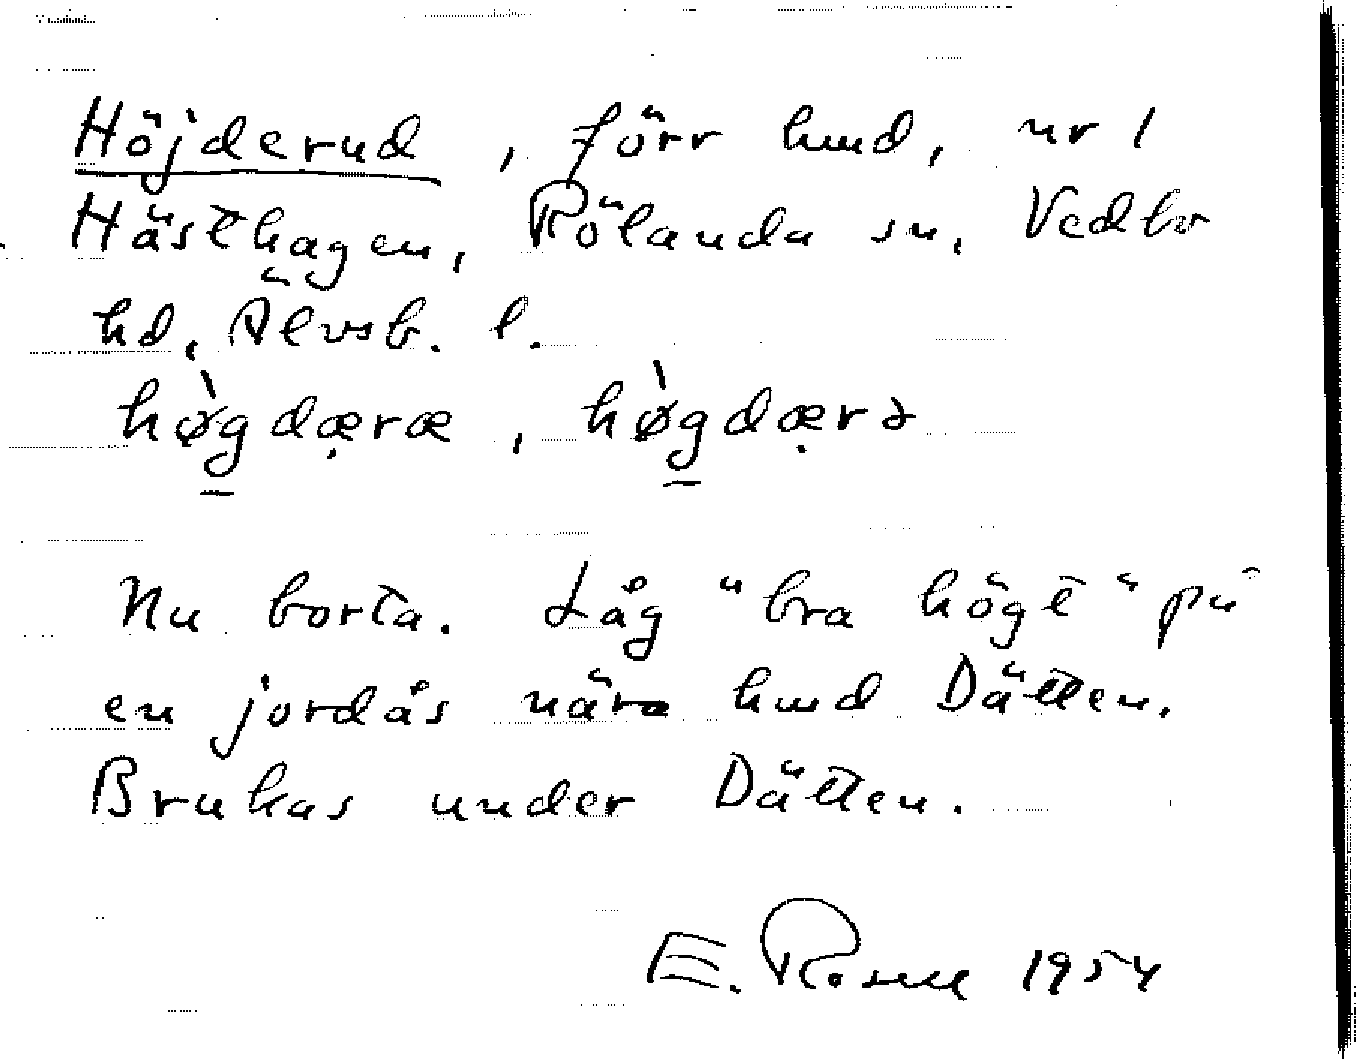 Höjderud, förr hmd, nr 1
Hästhagen, Rölanda sn, Vedbo
hd, Älvsb. l.
hø̀gdæræ, hø̀gdærə
Nu borta. Låg "bra högt" på
en jordås nära hmd Dätten.
Brukas under Dätten.
E. Rosell 1954